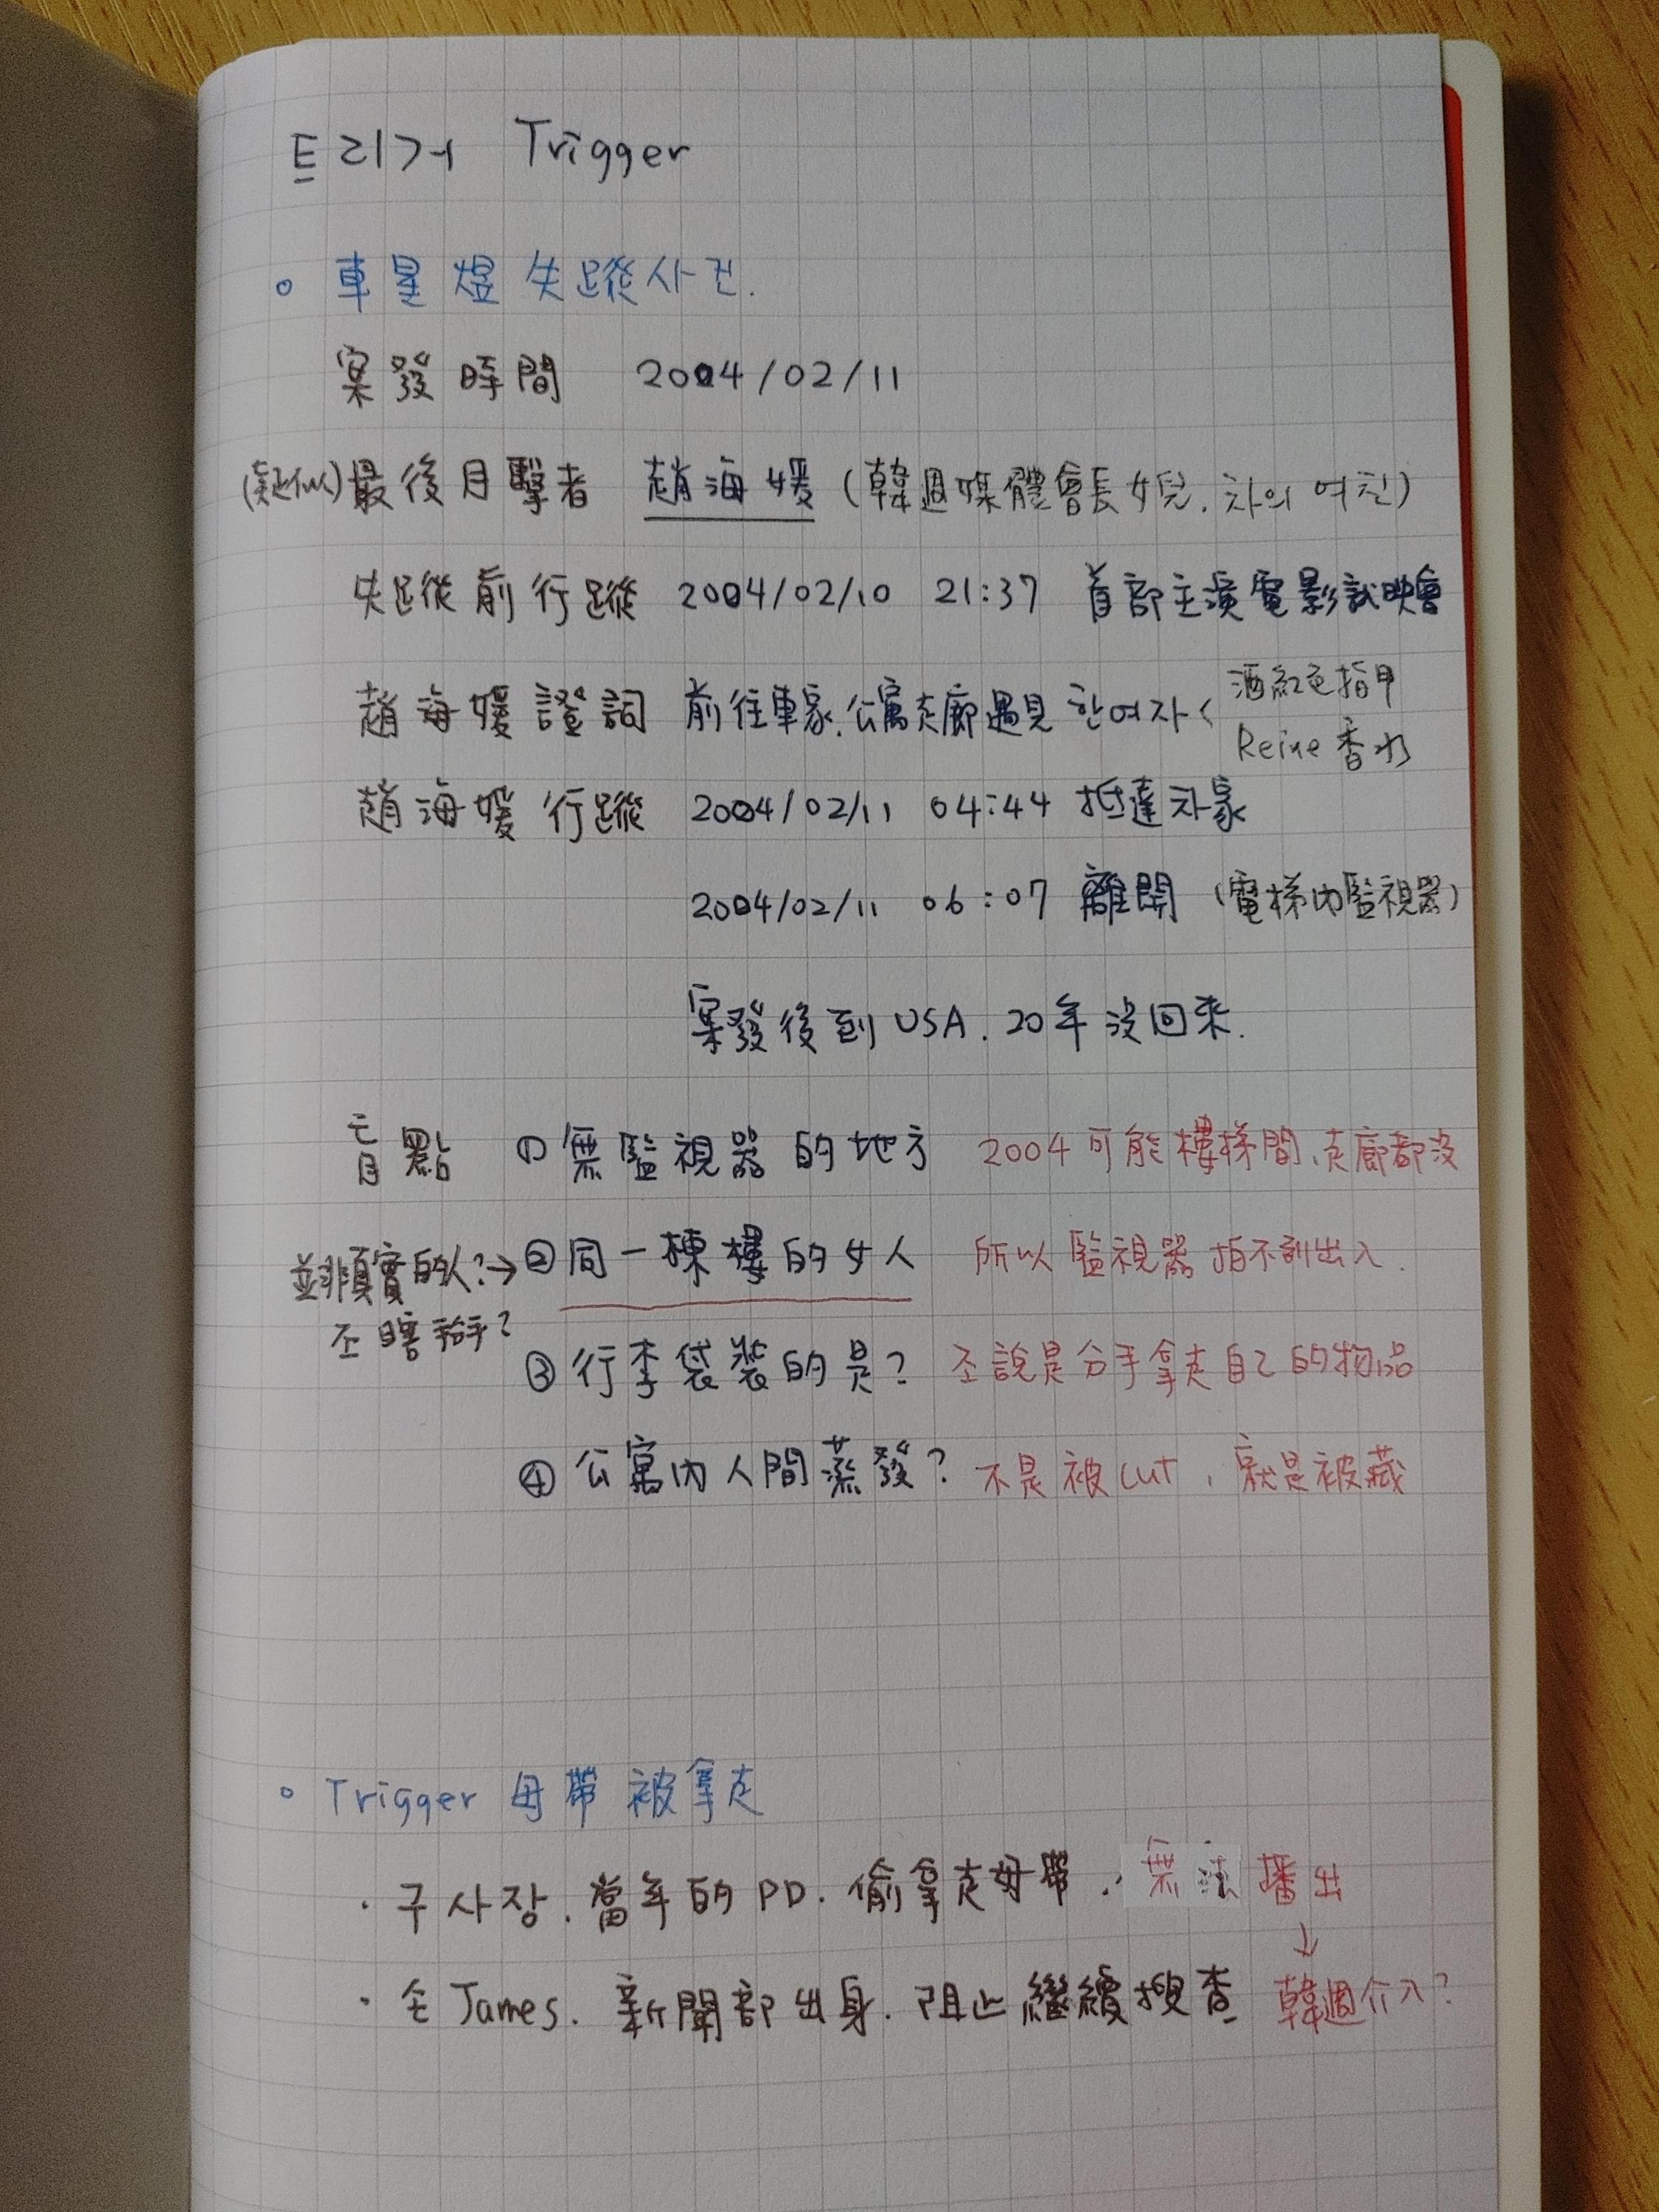 트리거 Trigger
。車星煜失蹤사건.
案發時間 2004/02/11
(疑似)最後目擊者 趙海媛 (韓週媒體會長女兒.차의 여친)
失蹤前行蹤 2004/02/10 21:37 首部主演電影試映會
趙海媛證詞 前往車家.公寓走廊遇見한여자< 酒紅色指甲
Reine香水
趙海媛行蹤 2004/02/11 04:44 抵達차家
2004/02/11 06:07 離開 (電梯內監視器)
案發後到USA.20年沒回來.
盲點 ①無監視器的地方 2004可能樓梯間、走廊都沒
並非真實的人?→ ②同一棟樓的女人 所以監視器拍不到出入.
조瞎掰?
③行李袋裝的是? 조說是分手拿走自己的物品
④公寓內人間蒸發? 不是被cut,就是被藏
。Trigger 母帶被拿走
·구사장.當年的PD.偷拿走母帶. 無法播出
↓
·손James.新聞部出身.阻止繼續搜查 韓週介入?